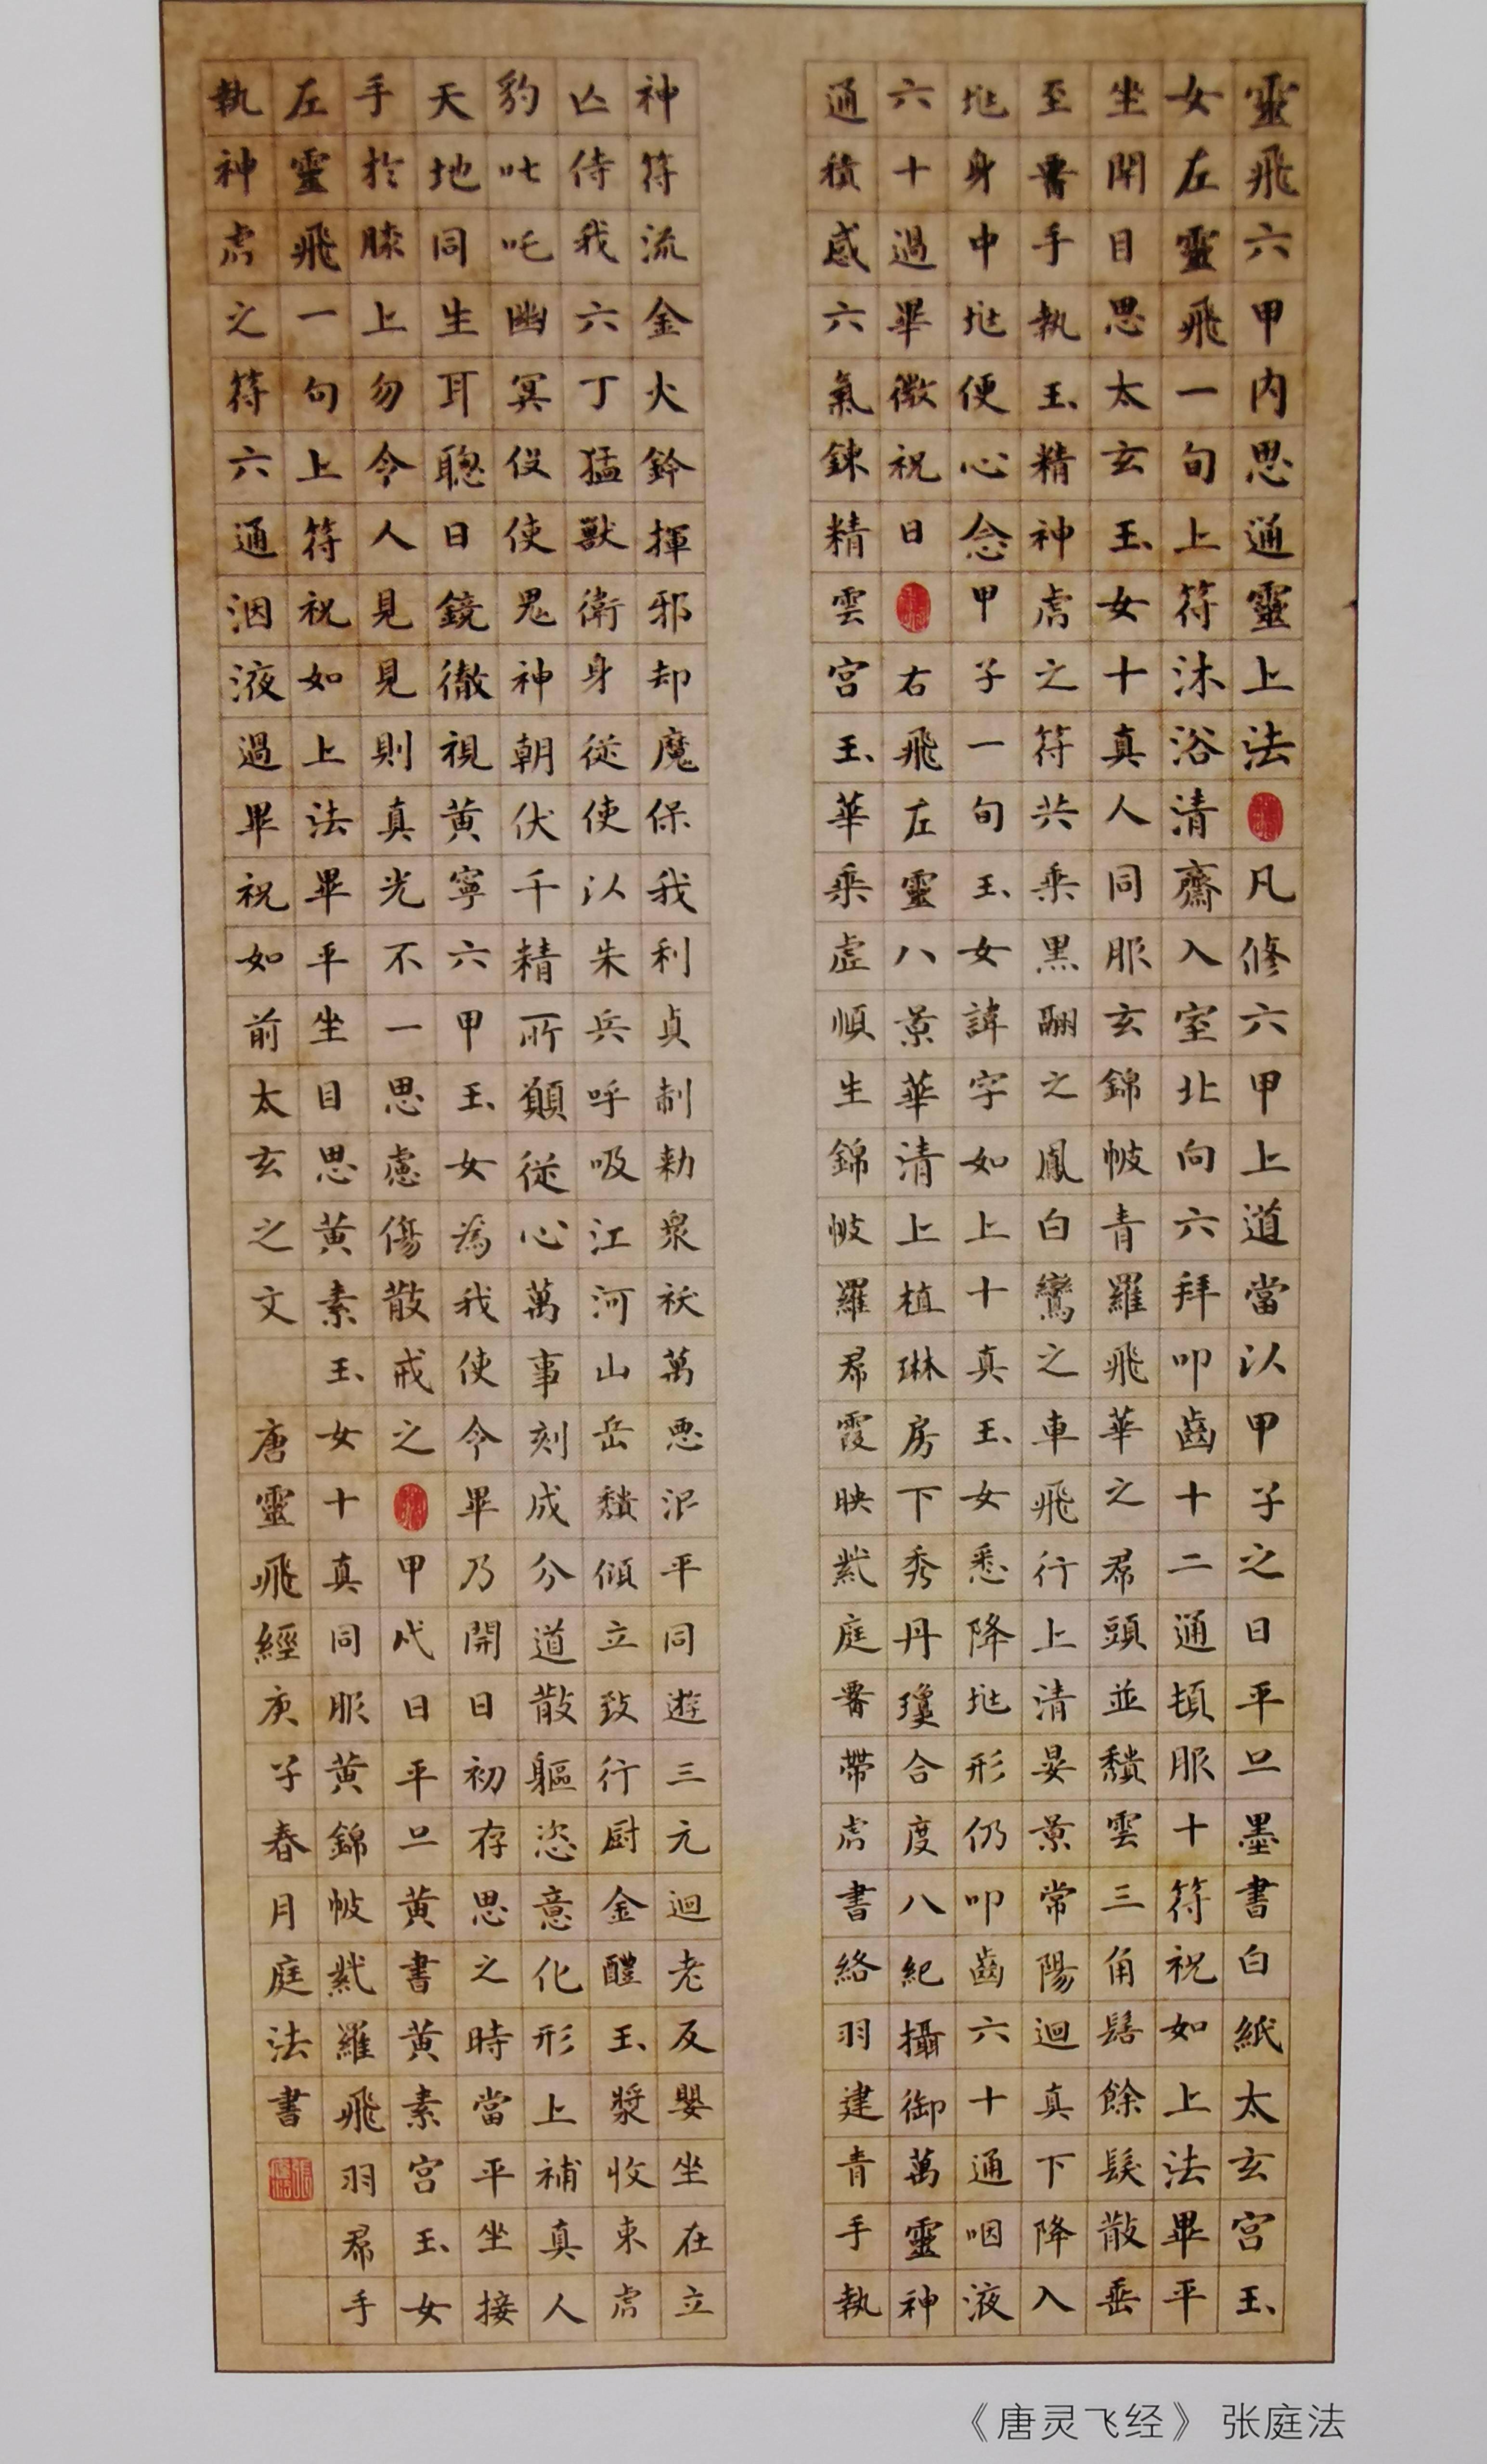 靈飛六甲内思通靈上法凡修六甲上道當以甲子之日平旦墨書白紙太玄宫玉
女左靈飛一旬上符沐浴清齋入室北向六拜叩齒十二通頓服十符祝如上法畢平
坐閇目思太玄玉女十真人同服玄錦帔青羅飛華之帬頭並頹雲三角髻餘髮散垂
至腰手執玉精神虎之符共乘黑翮之鳳白鸞之車飛行上清晏景常陽迴真下降入
兆身中兆便心念甲子一旬玉女諱字如上十真玉女悉降兆形仍叩齒六十通咽液
六十過畢微祝曰右飛左靈八景華清上植琳房下秀丹瓊合度八紀攝御萬靈神
通積感六氣鍊精雲宫玉華乘虚順生錦帔羅帬霞映紫庭腰帶虎書絡羽建青手執
神符流金火鈴揮邪却魔保我利貞制勅衆祅萬惡泯平同遊三元迴老反嬰坐在立
亾侍我六丁猛獸衛身從使以朱兵呼吸江河山岳頹傾立致行厨金醴玉漿收束虎
豹叱吒幽冥役使鬼神朝伏千精所願從心萬事刻成分道散軀恣意化形上補真人
天地同生耳聰日鏡徹視黄寧六甲玉女為我使令畢乃開目初存思之時當平坐接
手於膝上勿令人見見則真光不一思慮傷散戒之甲戌日平旦黄書黄素宫玉女
左靈飛一旬上符祝如上法畢平坐目思黄素玉女十真同服黄錦帔紫羅飛羽帬手
執神虎之符六通洇液過畢祝如前太玄之文 唐靈飛經庚子春月庭法書
《唐灵飞经》张庭法